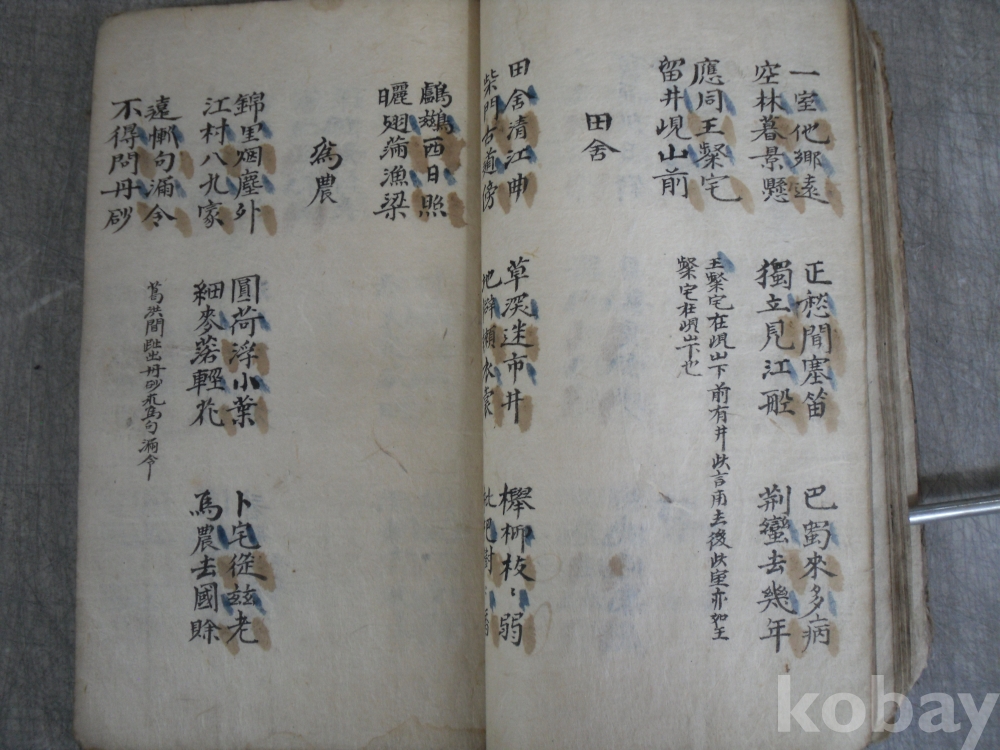 一室他鄉遠 正愁聞塞笛 巴蜀來多病
空林暮景懸 獨立見江船 荊蠻去幾年
應同王粲宅
留井峴山前
王粲宅在峴山下前有井此言甫去後此室亦如王
粲宅在峴山下也
田舍
田舍清江曲 草深迷市井 櫸柳枝〻弱
柴門古道傍 地僻懶衣裳 枇杷 香
鸕鷀西日照
曬翅滿漁梁
爲農
錦里烟塵外 圓荷浮小葉 卜宅從玆老
江村八九家 細麥落輕花 爲農去國賖
遠慚句漏令
不得問丹砂
葛洪聞趾出丹砂求爲句漏令
kobay